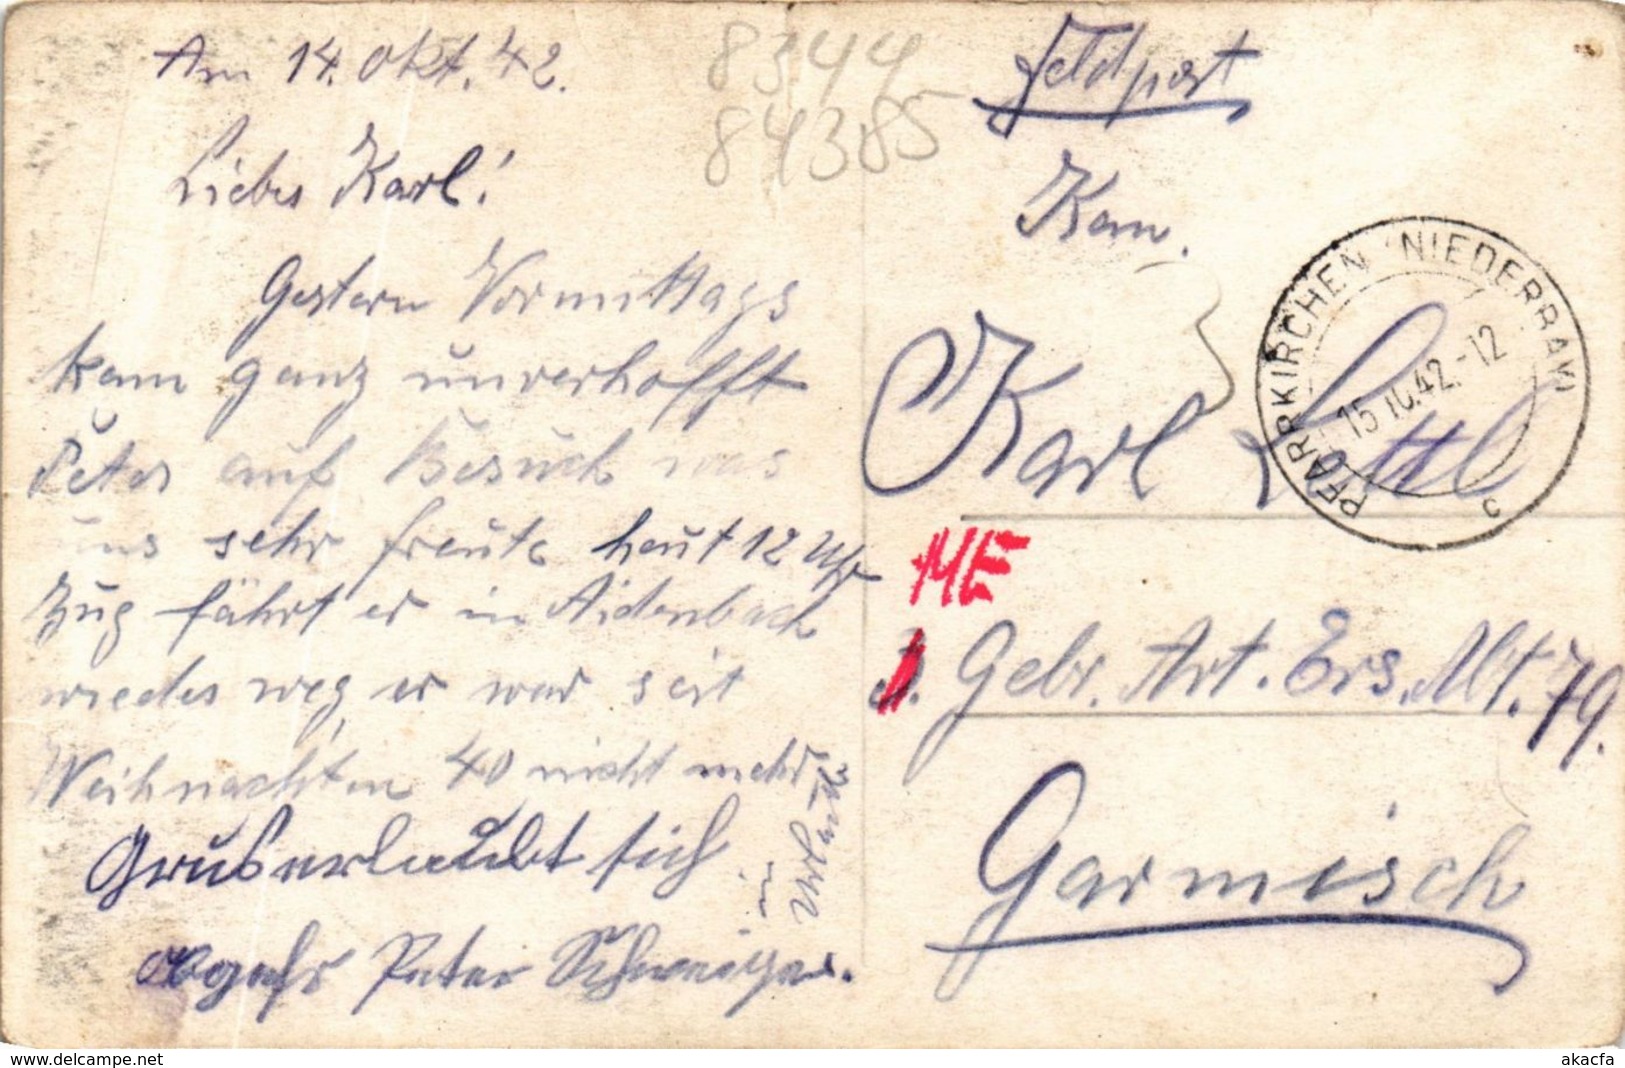 Am 14. Okt. 42.
Liebes Karl!
Gestern Vormittags
kam ganz unverhofft
Peter auf Besuch was
uns sehr freute heut 12 Uhr
Zug fährt er in Aidenbach
wieder weg, er war seit
Weihnachten 40 nicht mehr
in Urlaub
Grus erlaubt sich
Peter Schweiger.
8344
84385
Feldpost
Kan.
Karl
PFARRKIRCHEN (NIEDERBAY)
15.10.42.-12
c
ME
Gebr. Art. Ers. Abt. 79.
Garmisch
www.delcampe.net
akacfa